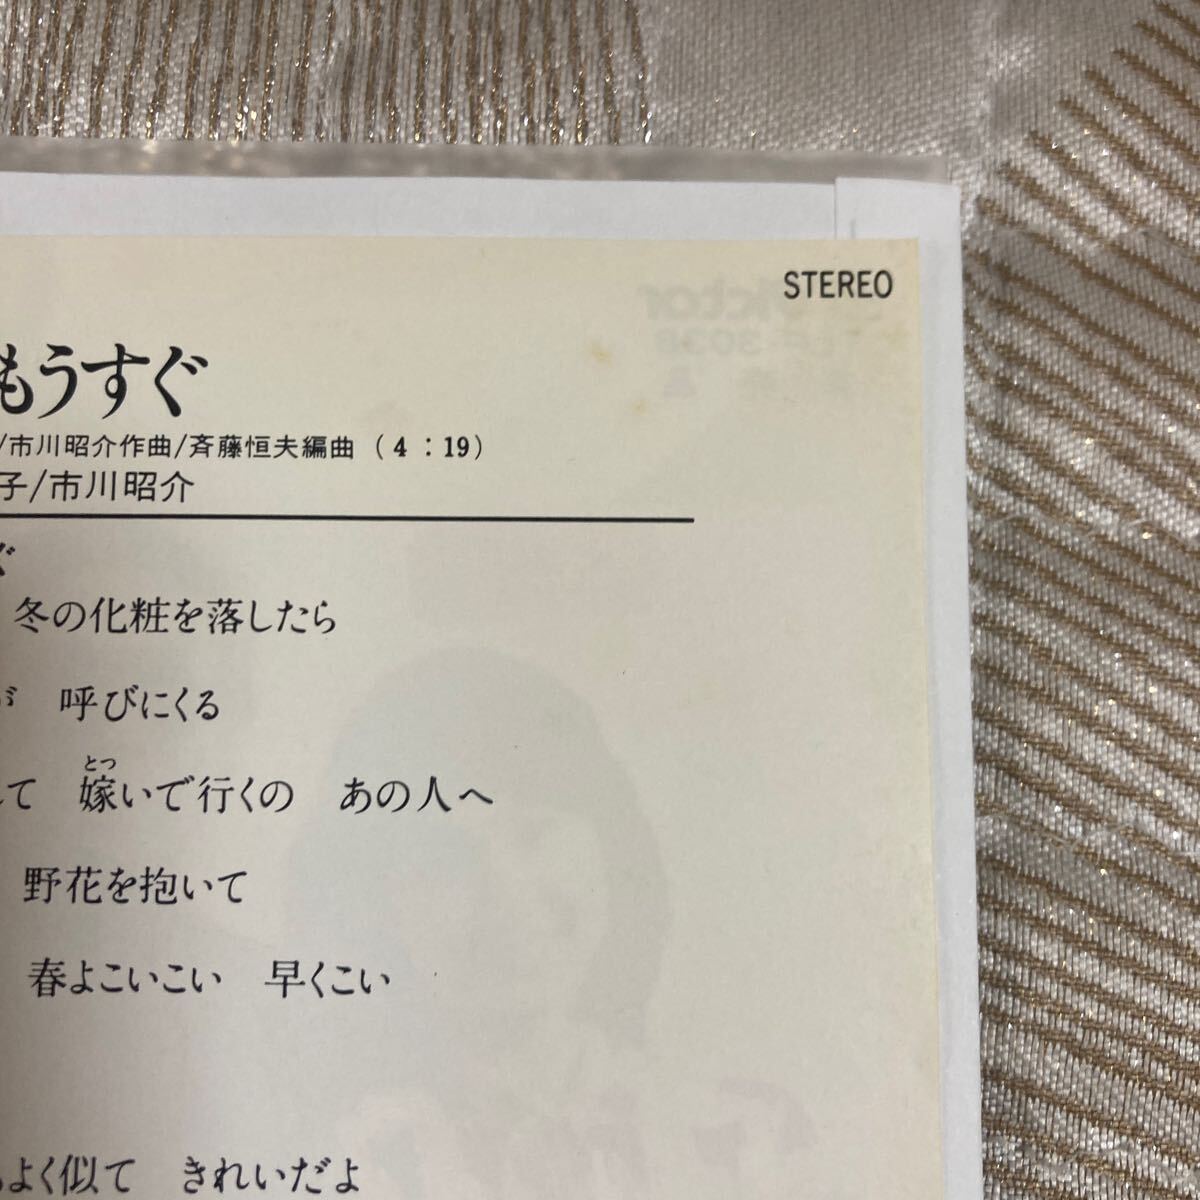 STEREO
もうすぐ
/市川昭介作曲/斉藤恒夫編曲 (4：19)
子/市川昭介
冬の化粧を落したら
が 呼びにくる
て 嫁いで行くの あの人へ
とつ
野花を抱いて
春よこいこい 早くこい
よく似て きれいだよ